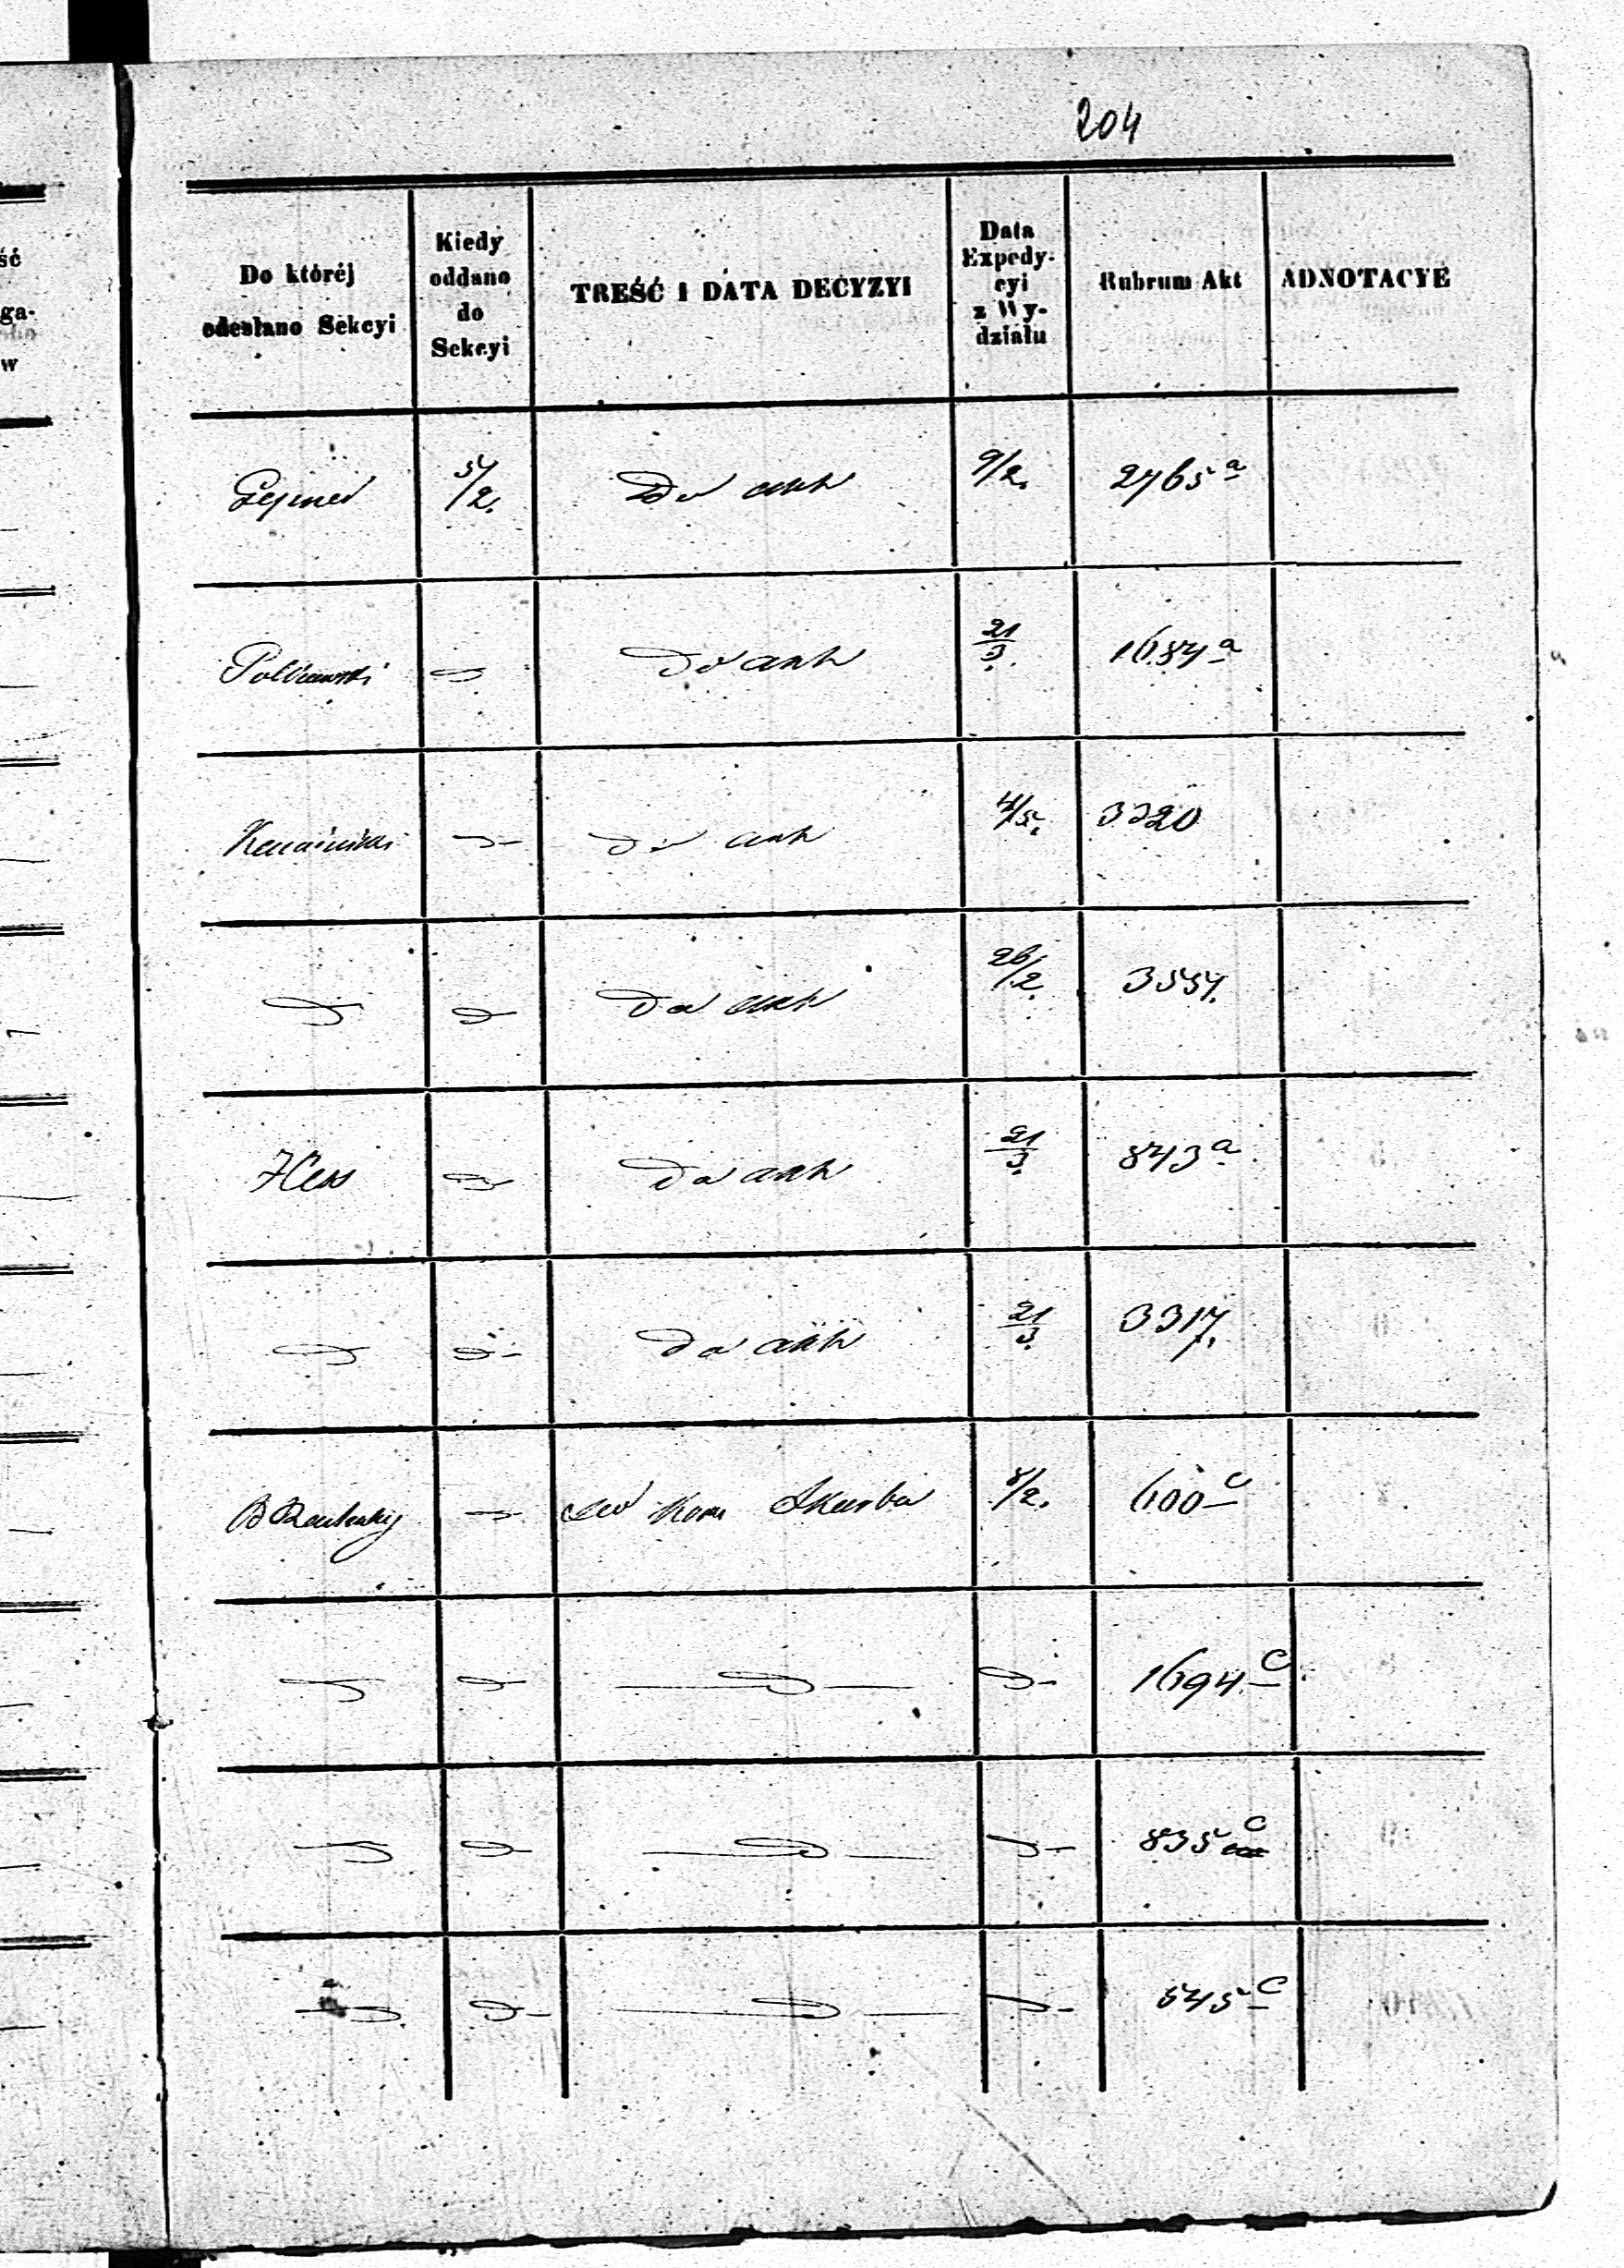 204
ść
ga-
w
Do któréj
odesłano Sekcyi
Kiedy
oddano
do
Sekcyi
TREŚĆ I DATA DECYZYI
Data
Expedy-
cyi
z Wy-
działu
Rubrum Akt
ADNOTACYE
5/2. Do akt 9/2. 2765 a
Do akt 21/3. 1684 a
do akt 4/5. 3320
do akt 26/2. 3554.
Hess do akt 21/3. 843 a
do akt 21/3. 3317.
Kom Skarbu 8/2. 600 c
1694 c
835 c
545 c